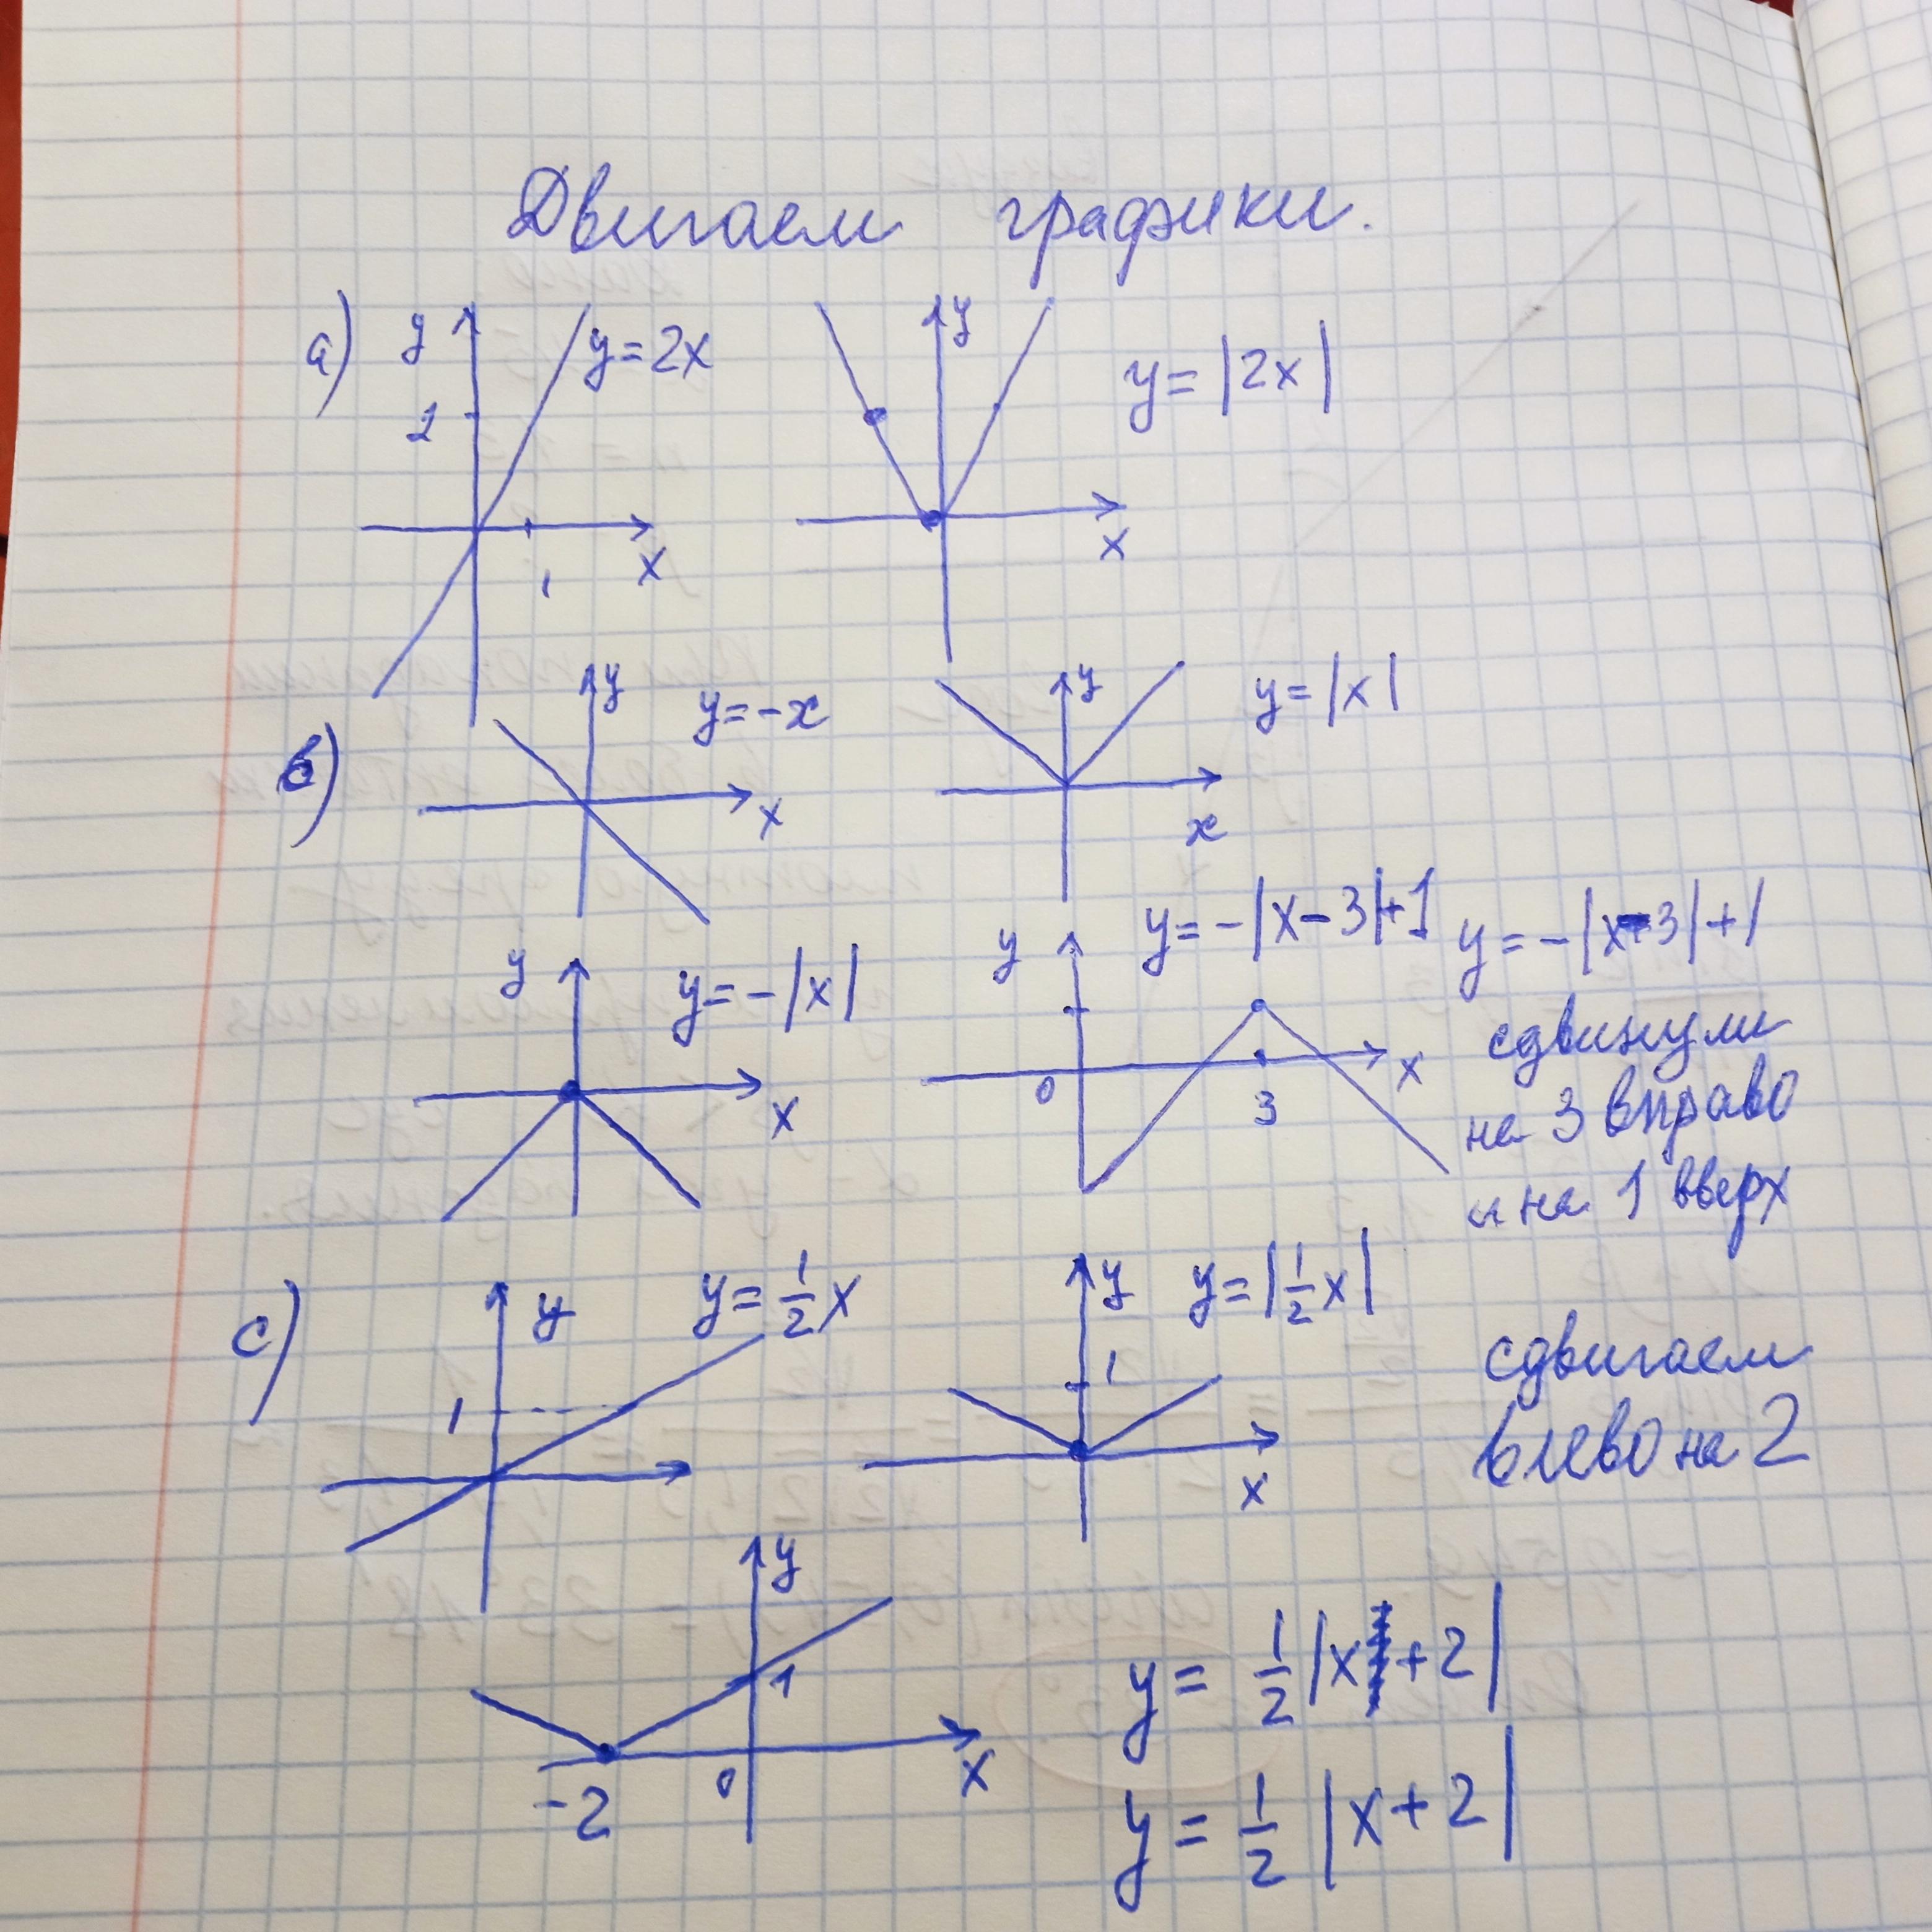 Двигаем графики.
a) y y=2x y y=|2x|
2
1 x x
в) y y=-x y y=|x|
x x
y y=-|x| y y=-|x-3|+1 y=-|x-3|+1
сдвинули
на 3 вправо
и на 1 вверх
x 0 3 x
c) y y=1/2x y y=|1/2x|
1 1
x
сдвигаем
влево на 2
y
1
-2 0 x
y=1/2|x+2|
y=1/2|x+2|